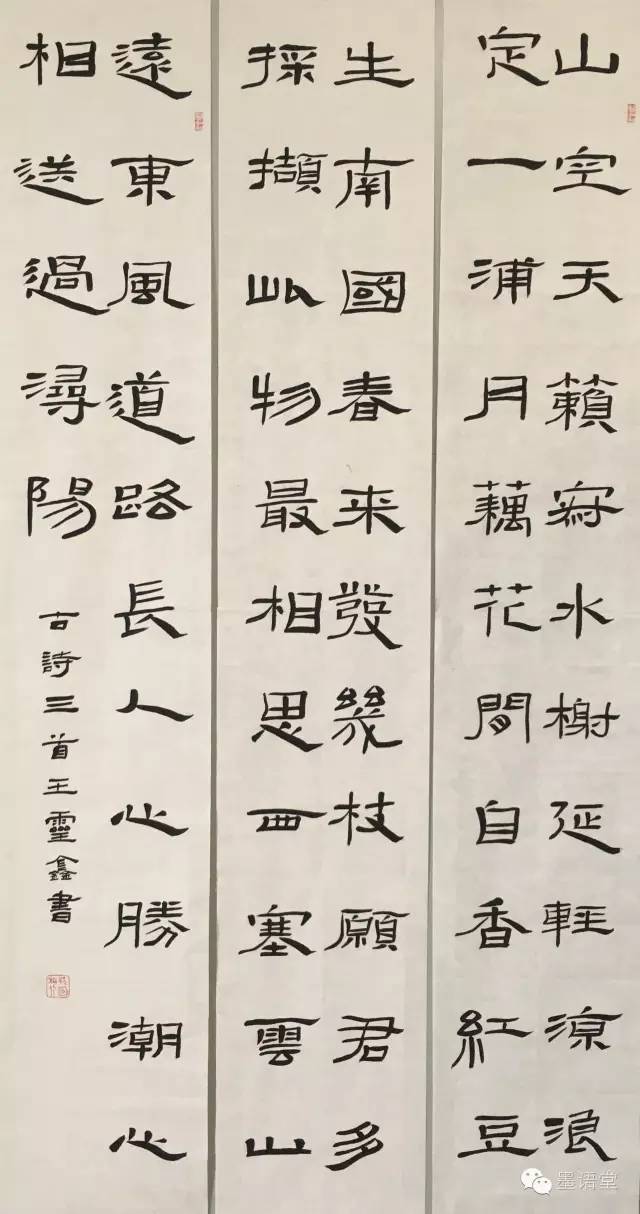 山空天籟寂水榭延輕涼浪
定一浦月藕花間自香紅豆
生南國春來發幾枝願君多
採擷此物最相思西塞雲山
遠東風道路長人心勝潮心
相送過潯陽
古詩三首王靈鑫書
墨语堂